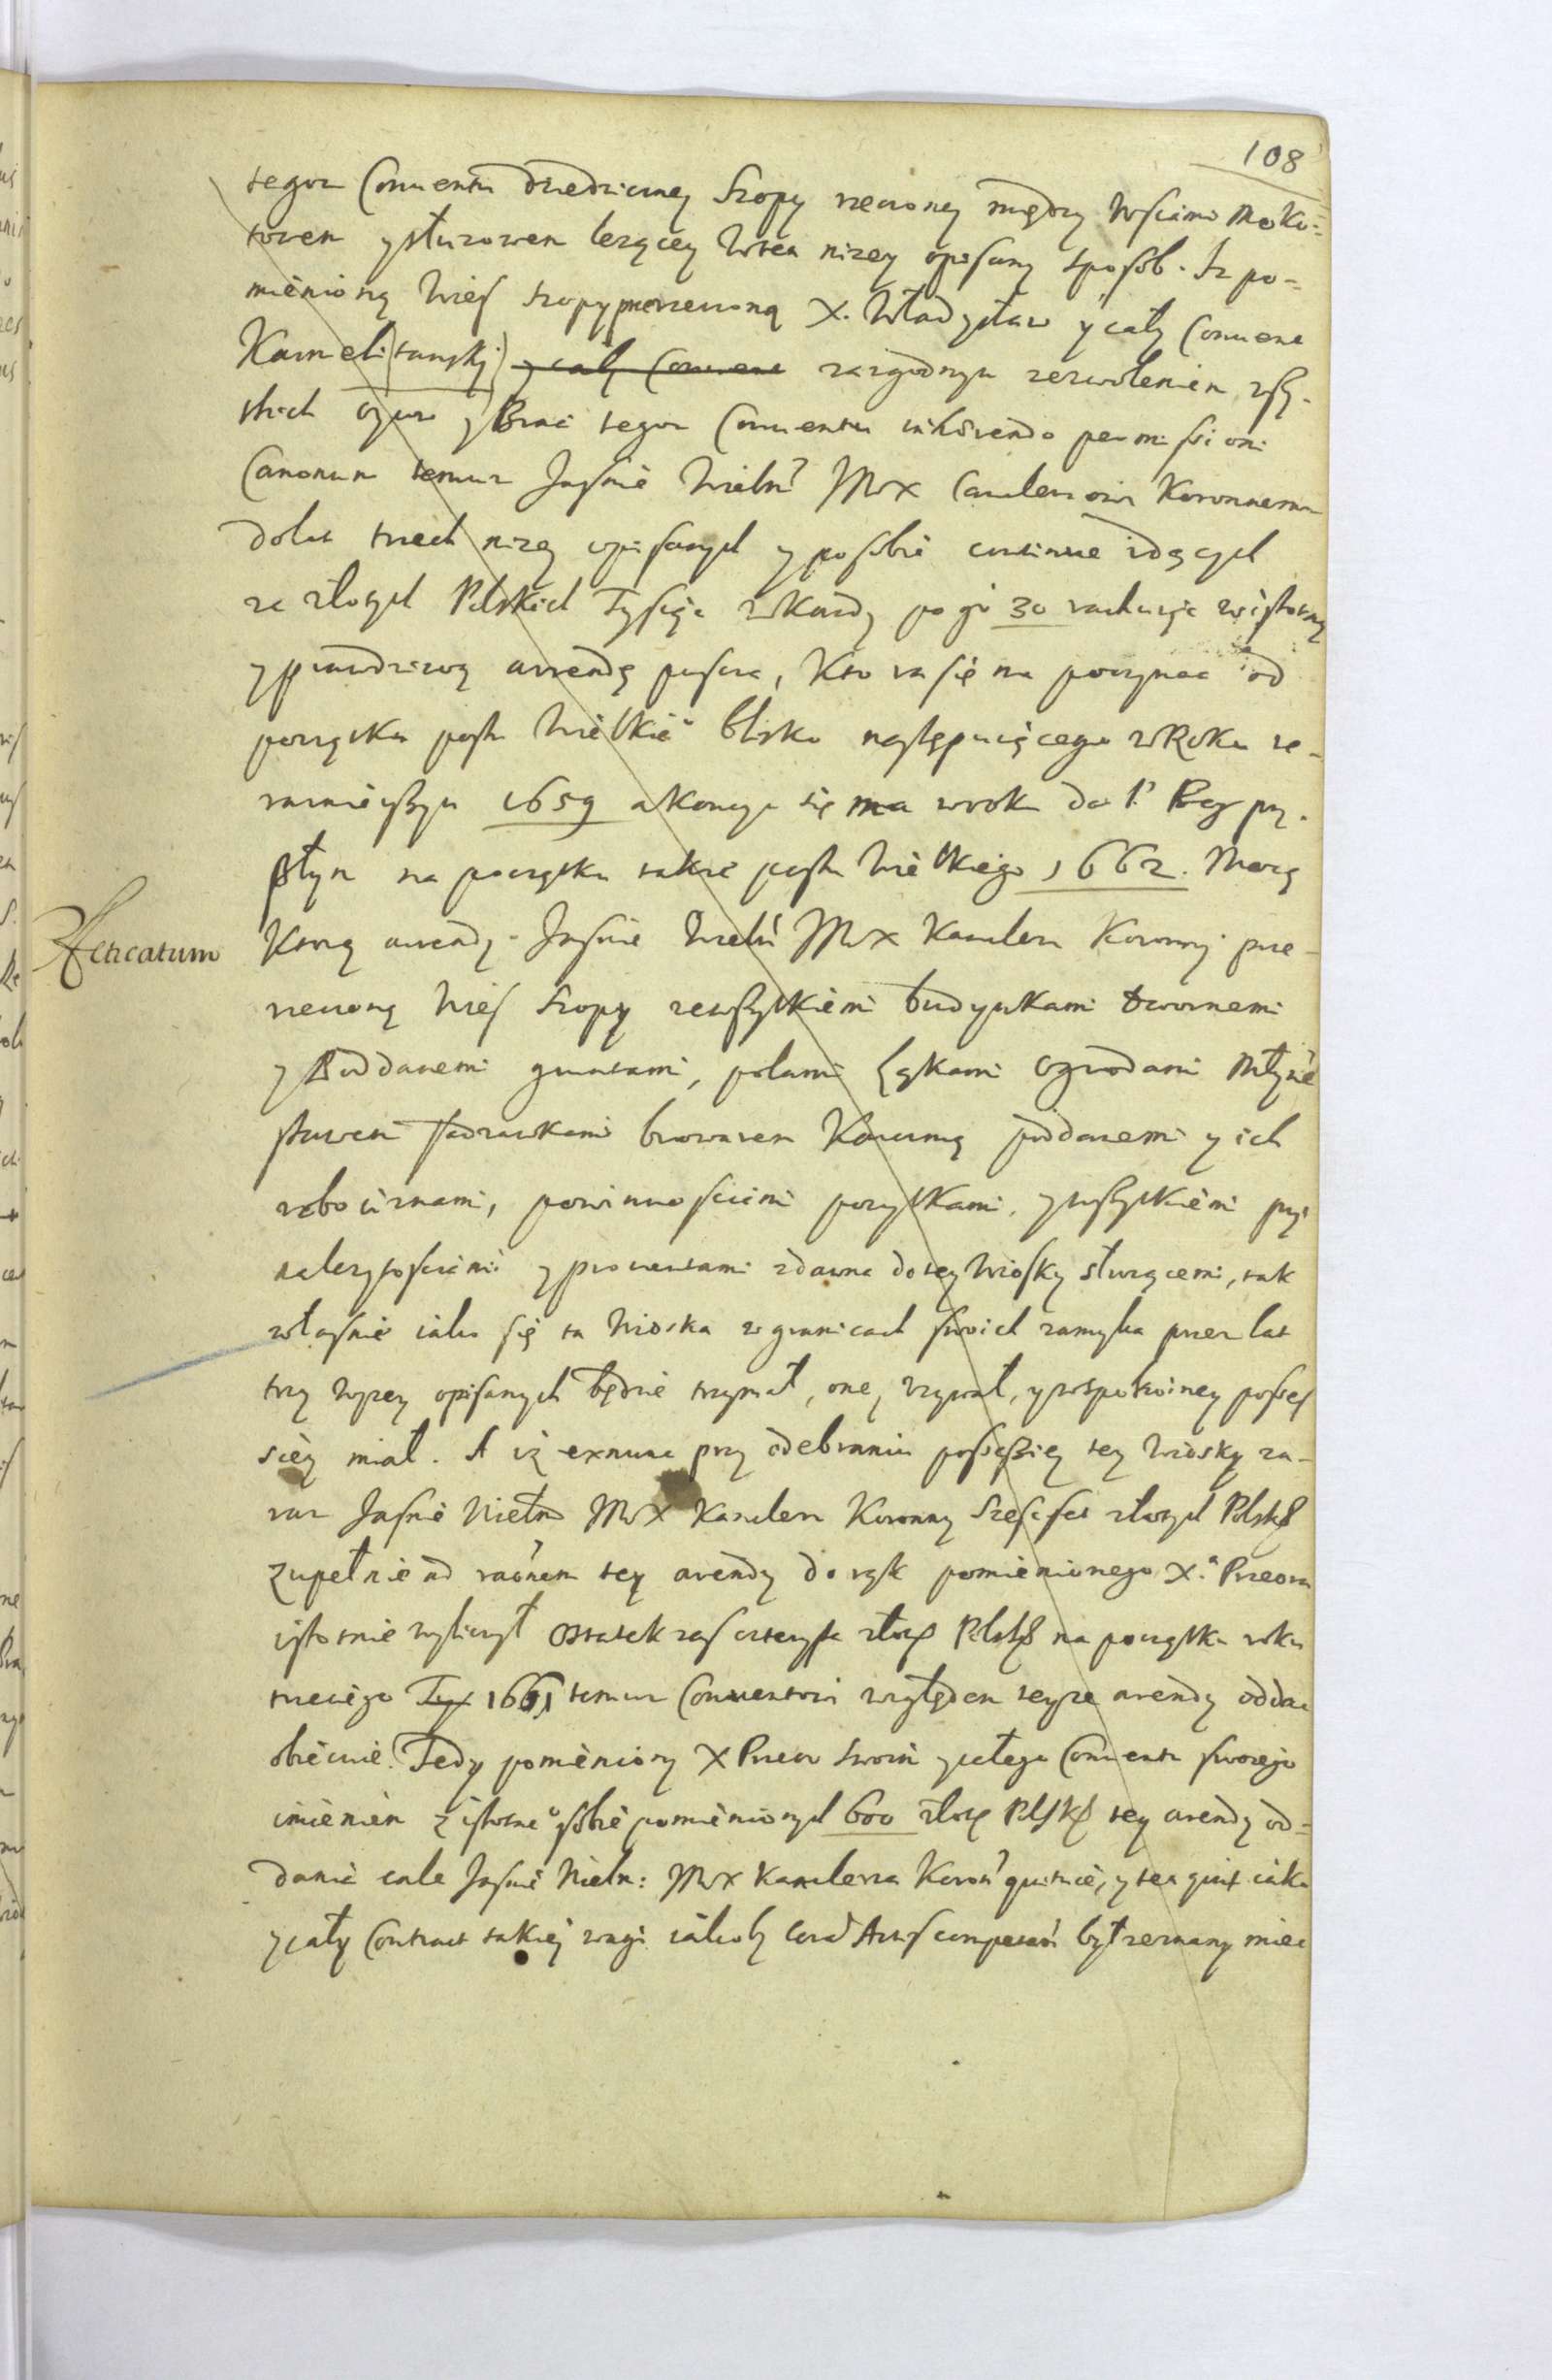 108
tegoz Conuentu dziedziczney Szopy rzeczoney między Wsciami Moko=
towem y Słuzowem lezącey w ten nizey opisany sposob. Iz po-
mienioną Wies Szopy przerzeczoną X. Władysław y cały Conuent
Karmelitanski y cały Conuent za zgodnym zezwoleniem wszy-
stkich Oycow y Braci tegoz Conuentu inhærendo permissioni
Canonum temuz Jasnie Wielm Mx Canclerzowi Koronnemu
do lat trzech nizey opisanych y po sobie continue idących
za złotych Polskich Tysiąc w kazdy po gr 30 rachuiąc w istotną
y prawdziwą arrendę puscza, Ktora się ma poczynac od
początku postu Wielkie° blisko następuiącego w Roku te-
raznieyszym 1659 a Konczyc się ma w rok da P. Bog przy-
szłym na początku takze postu Wielkiego 1662. Mocą
Ktorey arendy Jasnie Wielm Mx Kanclerz Koronny prze-
rzeczoną Wies Szopy ze wszytkiemi budynkami dwornemi
y Poddanemi gruntami, polami Łąkami Ogrodami Młyne
stawem sadzawkami browarem Karczmą poddanemi y ich
robociznami, powinnosciami pozytkami, y wszytkiemi przy
nalezytosciami y prowentami zdawna do tey Wiosky słuzącemi, tak
własnie iako się ta Wioska w granicach swoich zamyka przez lat
trzy wyzey opisanych będzie trzymał, oney vzywał, y w spokoiney posses
siey miał. A iz exnunc przy odebraniu possessiey tey Wiosky za-
raz Jasnie Wielm Mx Kanclerz Koronny Szescset złotych Polskich
Zupełnie ad rationem tey arendy do rąk pomienionego X. Przeora
istotnie wyliczył Ostatek zas czterysta złotych Polskich na początku roku
trzeciego 1661 temuz Conuentowi względem teyze arendy oddac
obiecuie. Tedy pomieniony X Przeor swoim y całego Conuentu swoiego
imieniem z istotne° sobie pomienionych 600 złotych Polskich tey arendy od=
danie cale Jasnie Wielm: Mx Kanclerza Koron quituie, y ten quit iako
y cały Contract takiey wagi iakoby coram Actis competen był zeznany miec
Aticatum